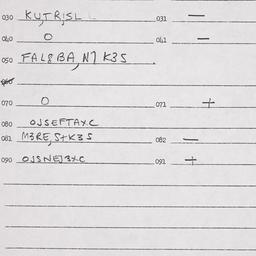 030 KU,TRJSL 031 —
040 O 041 —
050 FAL8BA,N7 K3S
060
070 O 071 +
080 OJSEFTAXC
081 M3RE,S+K3S 082 —
090 OJSNEJ3XC 091 +